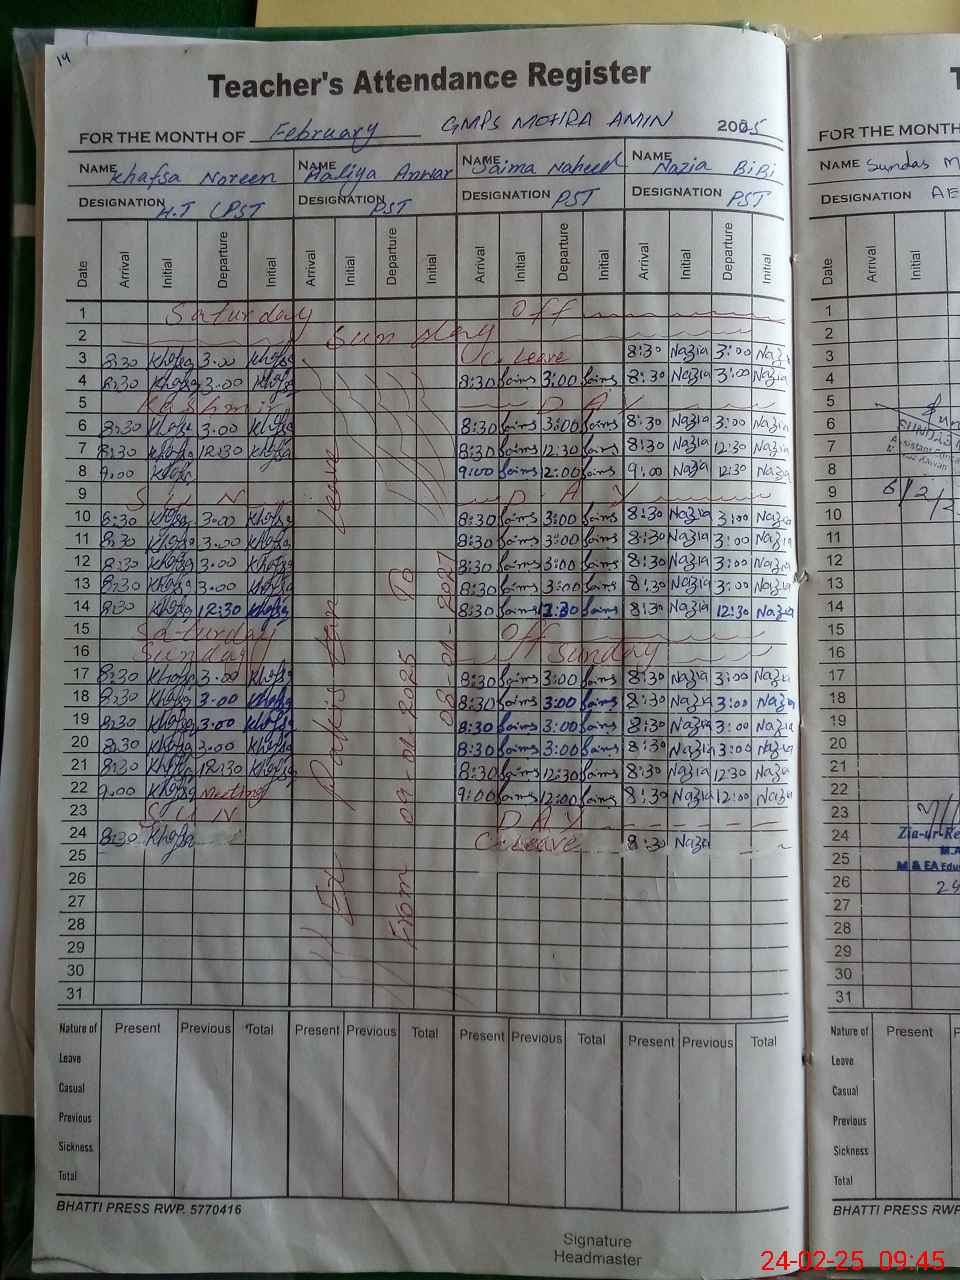 14
Teacher's Attendance Register
FOR THE MONTH OF February GMPS MOHRA AMIN 2025
NAME Khafsa Noreen NAME Aaliya Anwar NAME Saima Naheed NAME Nazia BiBi
DESIGNATION H.T (PST DESIGNATION PST DESIGNATION PST DESIGNATION PST
Date Arrival Initial Departure Initial Arrival Initial Departure Initial Arrival Initial Departure Initial Arrival Initial Departure Initial
1 Saturday Off
2 Sunday
3 8:30 Khafsa 3.00 Khafsa C. Leave 8:30 Nazia 3:00 Nazia
4 8:30 Khafsa 3.00 Khafsa 8:30 Saima 3:00 Saima 8:30 Nazia 3:00 Nazia
5 Kashmir DAY
6 8:30 Khafsa 3.00 Khafsa 8:30 Saima 3:00 Saima 8:30 Nazia 3:00 Nazia
7 8:30 Khafsa 12:30 Khafsa 8:30 Saima 12:30 Saima 8:30 Nazia 12:30 Nazia
8 9:00 Khafsa 9:00 Saima 12:00 Saima 9:00 Nazia 12:30 Nazia
9 SUN DAY
10 8:30 Khafsa 3.00 Khafsa 8:30 Saima 3:00 Saima 8:30 Nazia 3:00 Nazia
11 8:30 Khafsa 3.00 Khafsa 8:30 Saima 3:00 Saima 8:30 Nazia 3:00 Nazia
12 8:30 Khafsa 3.00 Khafsa 8:30 Saima 3:00 Saima 8:30 Nazia 3:00 Nazia
13 8:30 Khafsa 3.00 Khafsa 8:30 Saima 3:00 Saima 8:30 Nazia 3:00 Nazia
14 8:30 Khafsa 12:30 Khafsa 8:30 Saima 12:30 Saima 8:30 Nazia 12:30 Nazia
15 Saturday Off
16 Sunday Sunday
17 8:30 Khafsa 3.00 Khafsa 8:30 Saima 3:00 Saima 8:30 Nazia 3:00 Nazia
18 8:30 Khafsa 3.00 Khafsa 8:30 Saima 3:00 Saima 8:30 Nazia 3:00 Nazia
19 8:30 Khafsa 3.00 Khafsa 8:30 Saima 3:00 Saima 8:30 Nazia 3:00 Nazia
20 8:30 Khafsa 3.00 Khafsa 8:30 Saima 3:00 Saima 8:30 Nazia 3:00 Nazia
21 8:30 Khafsa 12:30 Khafsa 8:30 Saima 12:30 Saima 8:30 Nazia 12:30 Nazia
22 9:00 Khafsa Meeting 9:00 Saima 12:00 Saima 8:30 Nazia 12:00 Nazia
23 SUN DAY
24 8:30 Khafsa C. Leave 8:30 Nazia
25
26
27
28
29
30
31
Ex Pakistan Leave
From 09-01-2025 To
08-01-2027
Nature of Present Previous Total Present Previous Total Present Previous Total Present Previous Total
Leave
Casual
Previous
Sickness
Total
BHATTI PRESS RWP. 5770416
Signature
Headmaster
FOR THE MONTH
NAME Sundas M
DESIGNATION AE
Date Arrival Initial
1
2
3
4
5
6
7
8
9 6/2/25
10
11
12
13
14
15
16
17
18
19
20
21
22
23
24 Zia-ur-Re
25 M.A
M & EA Edu
26
27
28
29
30
31
Nature of Present
Leave
Casual
Previous
Sickness
Total
BHATTI PRESS RWP
24-02-25 09:45